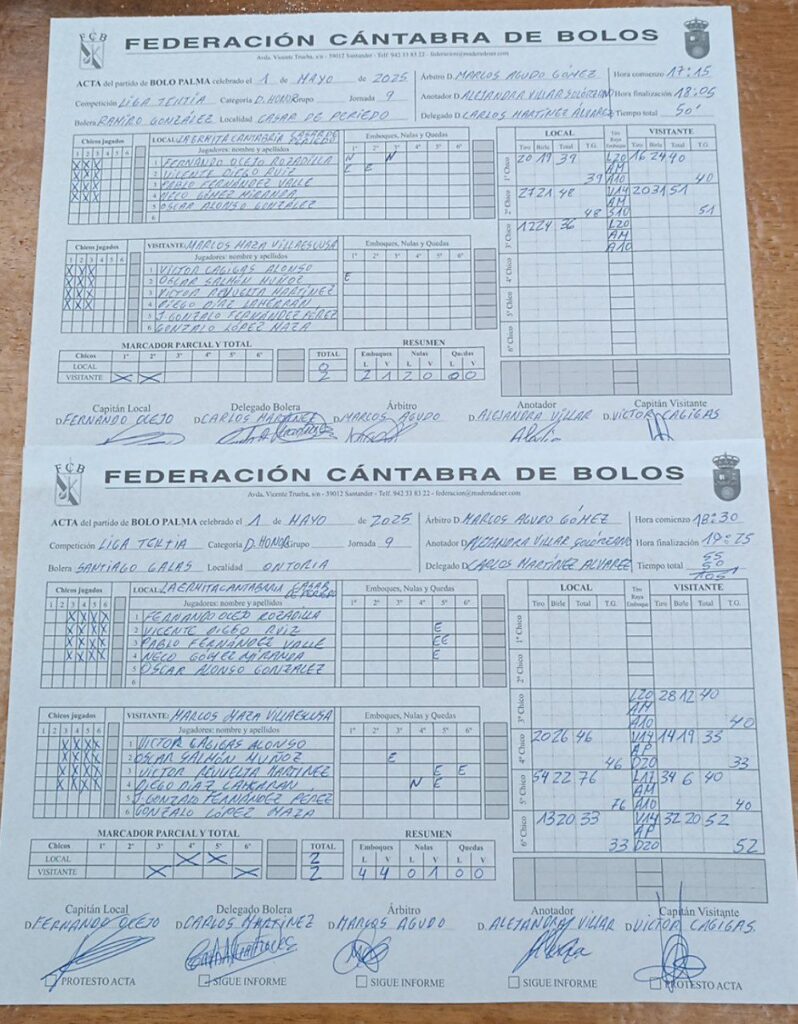 FCB
FEDERACIÓN CÁNTABRA DE BOLOS
Avda. Vicente Trueba, s/n - 39012 Santander - Telf. 942 33 83 22 - federacion@maderadeser.com
ACTA del partido de BOLO PALMA celebrado el 1 de MAYO de 2025 Árbitro D. MARCOS AGUDO GÓMEZ Hora comienzo 17:15
Competición LIGA TERTIA Categoría D. HONOR Grupo Jornada 9 Anotador D. ALEJANDRA VILLAR SOLÓRZANO Hora finalización 18:05
Bolera RAMIRO GONZÁLEZ Localidad CASAR DE PERIEDO Delegado D. CARLOS MARTÍNEZ ÁLVAREZ Tiempo total 50'
Chicos jugados LOCAL: LA ERMITA CANTABRIA CASAR DE PERIEDO Emboques, Nulas y Quedas
1 2 3 4 5 6 Jugadores: nombre y apellidos 1º 2º 3º 4º 5º 6º
X X X 1 FERNANDO OCEJO ROZADILLA N N
X X X 2 VICENTE DIEGO RUIZ E E
X X X 3 PABLO FERNÁNDEZ VALLE
X X X 4 NECO GÓMEZ MIRANDA
5 OSCAR ALONSO GONZÁLEZ
6
Chicos jugados VISITANTE: MARCOS MAZA VILLAESCUSA Emboques, Nulas y Quedas
1 2 3 4 5 6 Jugadores: nombre y apellidos 1º 2º 3º 4º 5º 6º
X X X 1 VICTOR CAGIGAS ALONSO
X X X 2 OSCAR SALMÓN MUÑOZ E
X X X 3 VICTOR REVUELTA MARTÍNEZ
X X X 4 DIEGO DÍAZ LAHERRÁN
5 J. GONZALO FERNÁNDEZ PÉREZ
6 GONZALO LÓPEZ MAZA
LOCAL Tiro Raya Emboque VISITANTE
Tiro Birle Total T.G. Tiro Birle Total T.G.
1º Chico 20 19 39 L20 16 24 40
AM
39 A10 40
2º Chico 27 21 48 V14 20 31 51
AM
48 S10 51
3º Chico 12 24 36 L20
AM
A10
4º Chico
5º Chico
6º Chico
MARCADOR PARCIAL Y TOTAL RESUMEN
Chicos 1º 2º 3º 4º 5º 6º TOTAL Emboques Nulas Quedas
LOCAL 0 L V L V L V
VISITANTE X X 2 2 1 2 0 0 0
Capitán Local Delegado Bolera Árbitro Anotador Capitán Visitante
D. FERNANDO OCEJO D. CARLOS MARTÍNEZ D. MARCOS AGUDO D. ALEJANDRA VILLAR D. VICTOR CAGIGAS
FCB
FEDERACIÓN CÁNTABRA DE BOLOS
Avda. Vicente Trueba, s/n - 39012 Santander - Telf. 942 33 83 22 - federacion@maderadeser.com
ACTA del partido de BOLO PALMA celebrado el 1 de MAYO de 2025 Árbitro D. MARCOS AGUDO GÓMEZ Hora comienzo 18:30
Competición LIGA TERTIA Categoría D. HONOR Grupo Jornada 9 Anotador D. ALEJANDRA VILLAR SOLÓRZANO Hora finalización 19:25
Bolera SANTIAGO GALAS Localidad ONTORIA Delegado D. CARLOS MARTÍNEZ ALVAREZ Tiempo total 55 50 105'
Chicos jugados LOCAL: LA ERMITA CANTABRIA CASAR DE PERIEDO Emboques, Nulas y Quedas
1 2 3 4 5 6 Jugadores: nombre y apellidos 1º 2º 3º 4º 5º 6º
X X X X 1 FERNANDO OCEJO ROZADILLA
X X X X 2 VICENTE DIEGO RUIZ E
X X X X 3 PABLO FERNÁNDEZ VALLE EE
X X X X 4 NECO GÓMEZ MIRANDA E
5 OSCAR ALONSO GONZÁLEZ
6
Chicos jugados VISITANTE: MARCOS MAZA VILLAESCUSA Emboques, Nulas y Quedas
1 2 3 4 5 6 Jugadores: nombre y apellidos 1º 2º 3º 4º 5º 6º
X X X X 1 VICTOR CAGIGAS ALONSO
X X X X 2 OSCAR SALMÓN MUÑOZ E
X X X X 3 VICTOR REVUELTA MARTÍNEZ E E
X X X X 4 DIEGO DÍAZ LAHERRAN N E
5 J. GONZALO FERNÁNDEZ PÉREZ
6 GONZALO LÓPEZ MAZA
LOCAL Tiro Raya Emboque VISITANTE
Tiro Birle Total T.G. Tiro Birle Total T.G.
1º Chico
2º Chico
3º Chico L20 28 12 40
AM
A10 40
4º Chico 20 26 46 V14 14 19 33
AP
46 D20 33
5º Chico 54 22 76 34 6 40
AM
76 A10 40
6º Chico 13 20 33 V14 32 20 52
AP
33 D20 52
MARCADOR PARCIAL Y TOTAL RESUMEN
Chicos 1º 2º 3º 4º 5º 6º TOTAL Emboques Nulas Quedas
LOCAL X X 2 L V L V L V
VISITANTE X X 2 4 4 0 1 0 0
Capitán Local Delegado Bolera Árbitro Anotador Capitán Visitante
D. FERNANDO OCEJO D. CARLOS MARTÍNEZ D. MARCOS AGUDO D. ALEJANDRA VILLAR D. VICTOR CAGIGAS.
PROTESTO ACTA SIGUE INFORME SIGUE INFORME SIGUE INFORME PROTESTO ACTA